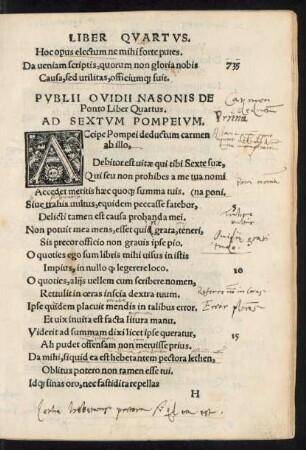 LIBER QVARTVS.
Hoc opus electum ne mihi forte putes.
Da ueniam scriptis, quorum non gloria nobis
735
Causa, sed utilitas, officiumq; fuit.
PVBLII OVIDII NASONIS DE
Ponto Liber Quartus.
AD SEXTVM POMPEIVM.
Carmen
Prima
ACcipe Pompei deductum carmen
ab illo,
Debitor est uitæ qui tibi Sexte suæ,
Qui seu non prohibes a me tua nomi
Accedet meritis hæc quoq; summa tuis. (na poni.
Siue trahis multus, equidem peccasse fatebor,
5
Delicti tamen est causa probanda mei.
Non potuit mea mens, esset quin grata, teneri,
Sis precor officio non grauis ipse pio.
O quoties ego sum libris mihi uisus in istis
Impius, in nullo q legerere loco.
10
O quoties, alijs uellem cum scribere nomen,
Retulit in ceras inscia dextra tuum.
Ipse quidem placuit mendis in talibus error,
Et uix inuita est facta litura manu.
Viderit ad summam dixi licet ipse queratur,
15
Ah pudet offensam non meruisse prius.
Da mihi, siquid ea est hebetantem pectora lethen,
Oblitus potero non tamen esse tui.
Idq; sinas oro, nec fastidita repellas
H